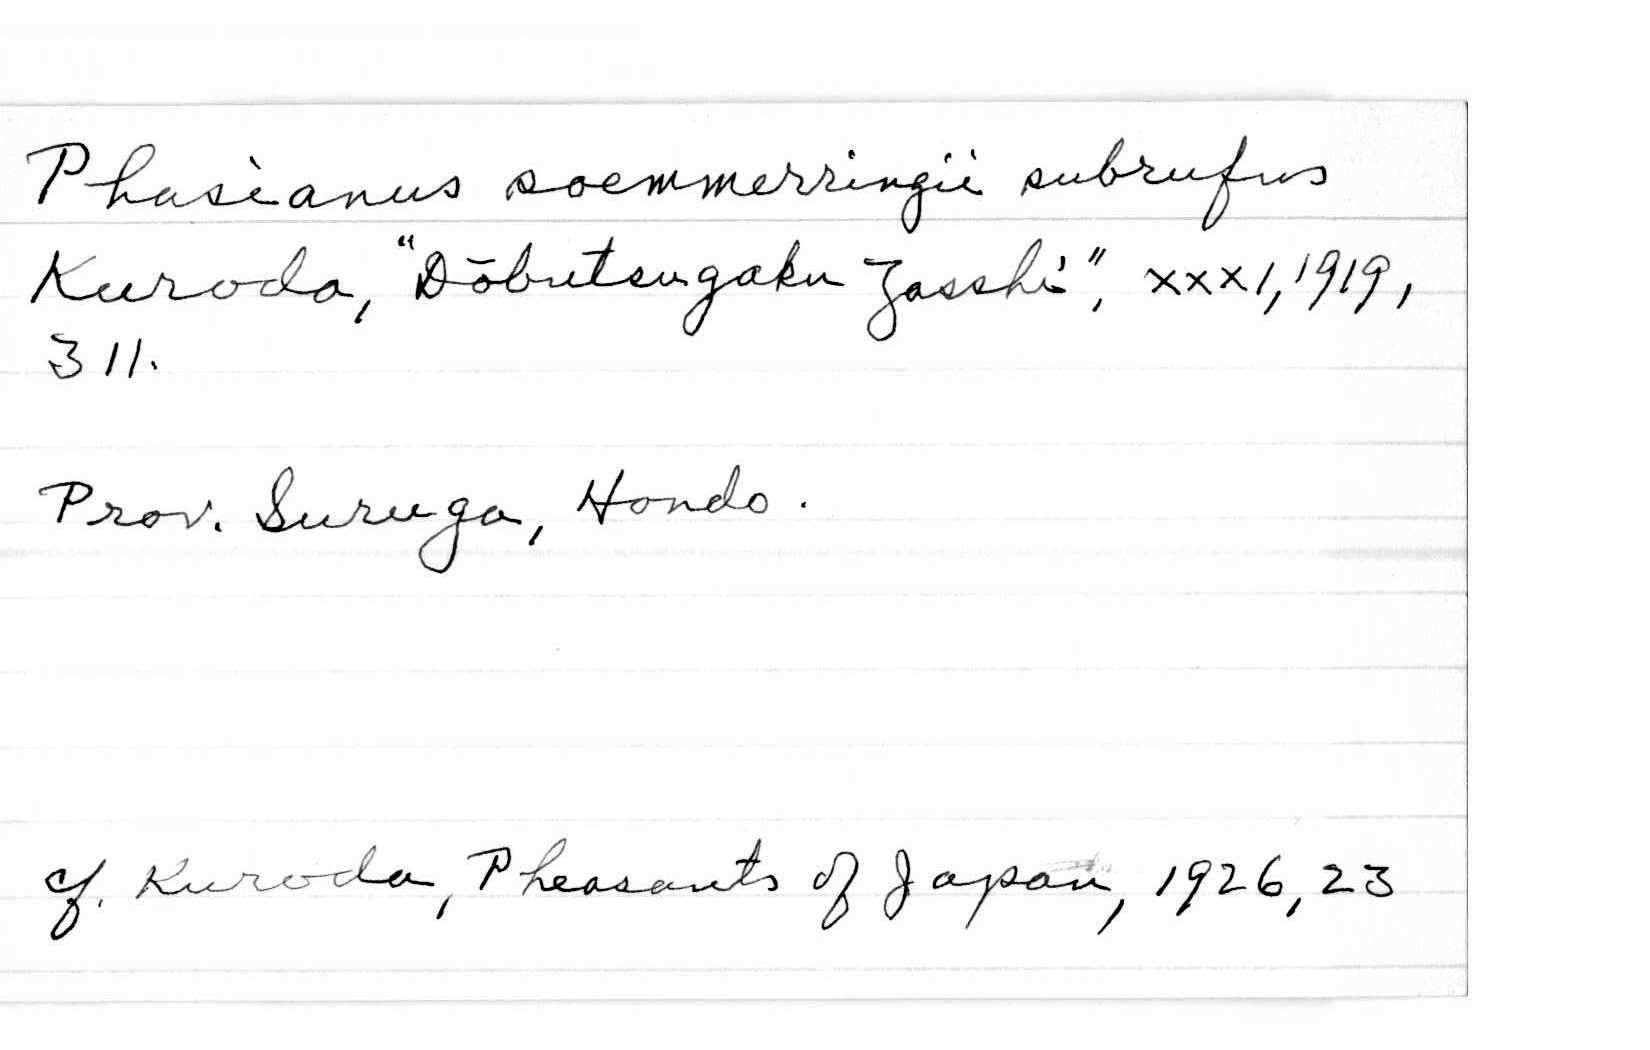 Phasianus soemmerringii subrufus
Kuroda, "Dōbutsugaku Zasshi", xxx1, 1919,
311.
Prov. Suruga, Hondo.
cf. Kuroda, Pheasants of Japan, 1926, 23